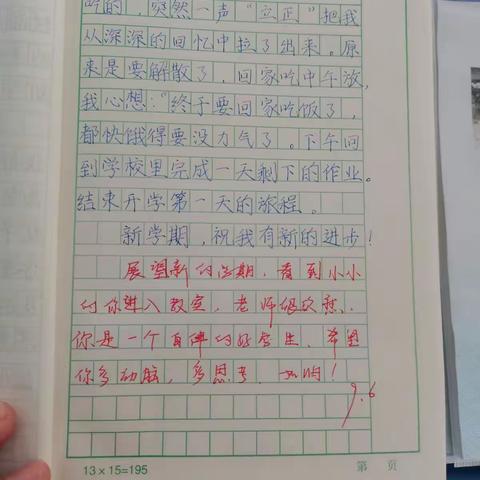 的，突然一声“立正”把我
从深深的回忆中拉了出来。原
来是要解散了，回家吃中午放，
我心想：“终于要回家吃饭了，
都快饿得要没力气了。下午回
到学校里完成一天剩下的作业。
结束开学第一天的旅程。
新学期，祝我有新的进步！
展望新的学期，看到小小
的你进入教室，老师很欣慰，
你是一个自律的好学生，希望
你多动脑，多思考，加油！
9.6
13×15=195
第 页